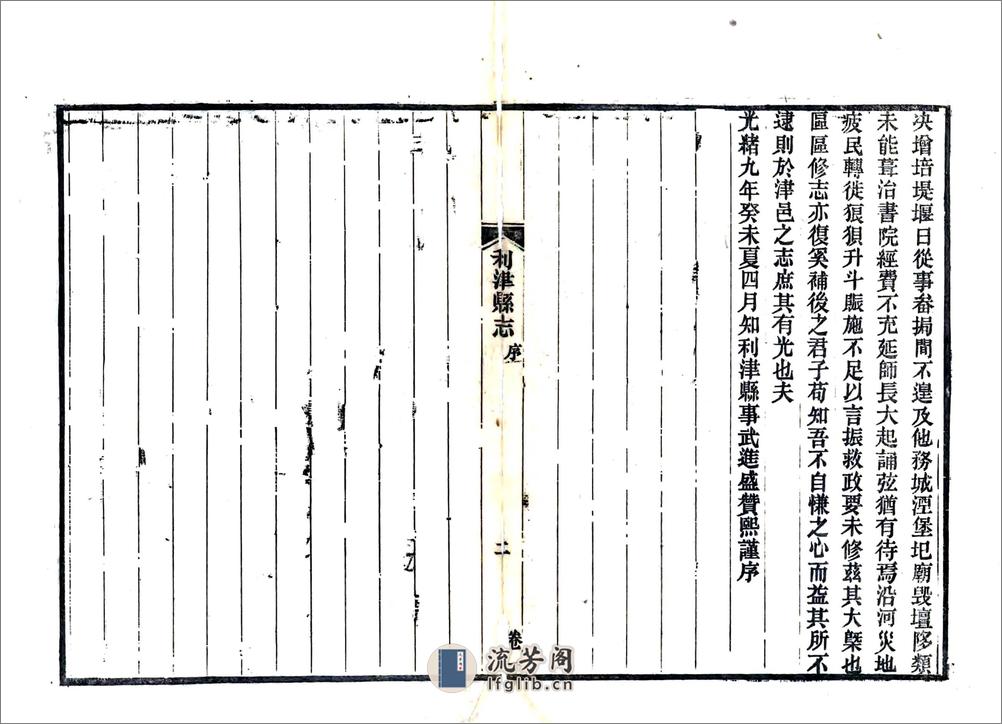 決增培堤堰日從事畚挶間不遑及他務城湮堡圮廟毀壇陊類
未能葺治書院經費不充延師長大起誦弦猶有待焉沿河災地
疲民轉徙狼狽升斗賑施不足以言振救政要未修茲其大槩也
區區修志亦復奚補後之君子苟知吾不自慊之心而益其所不
逮則於津邑之志庶其有光也夫
光緒九年癸未夏四月知利津縣事武進盛贊熙謹序
利津縣志
序
二
卷
三
流芳阁
lfglib.cn